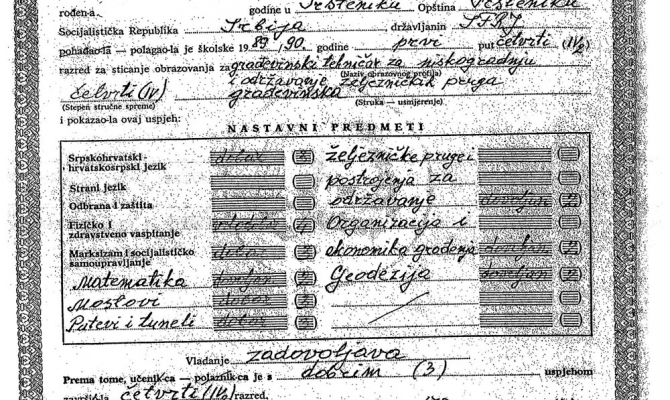 rođen-a. godine u Trsteniku Opština Trsteniku
Socijalistička Republika Srbija, državljanin SFRJ
pohađao-la — polagao-la je školske 1989/90. godine prvi put četvrti (IV)
razred za sticanje obrazovanja za građevinski tehničar za niskogradnju
(Naziv obrazovnog profila)
i održavanje željezničkih pruga
četvrti (IV) građevinska
(Stepen stručne spreme) (Struka — usmjerenje)
i pokazao-la ovaj uspjeh:
NASTAVNI PREDMETI
Srpskohrvatski - hrvatskosrpski jezik dobar željezničke pruge i
Strani jezik postrojenja za
Odbrana i zaštita održavanje dovoljan 2
Fizičko i zdravstveno vaspitanje Organizacija i
Marksizam i socijalističko samoupravljanje dobar ekonomika građenja 2
Matematika Geodezija dovoljan 2
Mostovi dobar
Putevi i tuneli dobar
Vladanje zadovoljava
Prema tome, učenik-ca — polaznik-ca je s dobrim (3) uspjehom
završio-la četvrti (IV) razred.